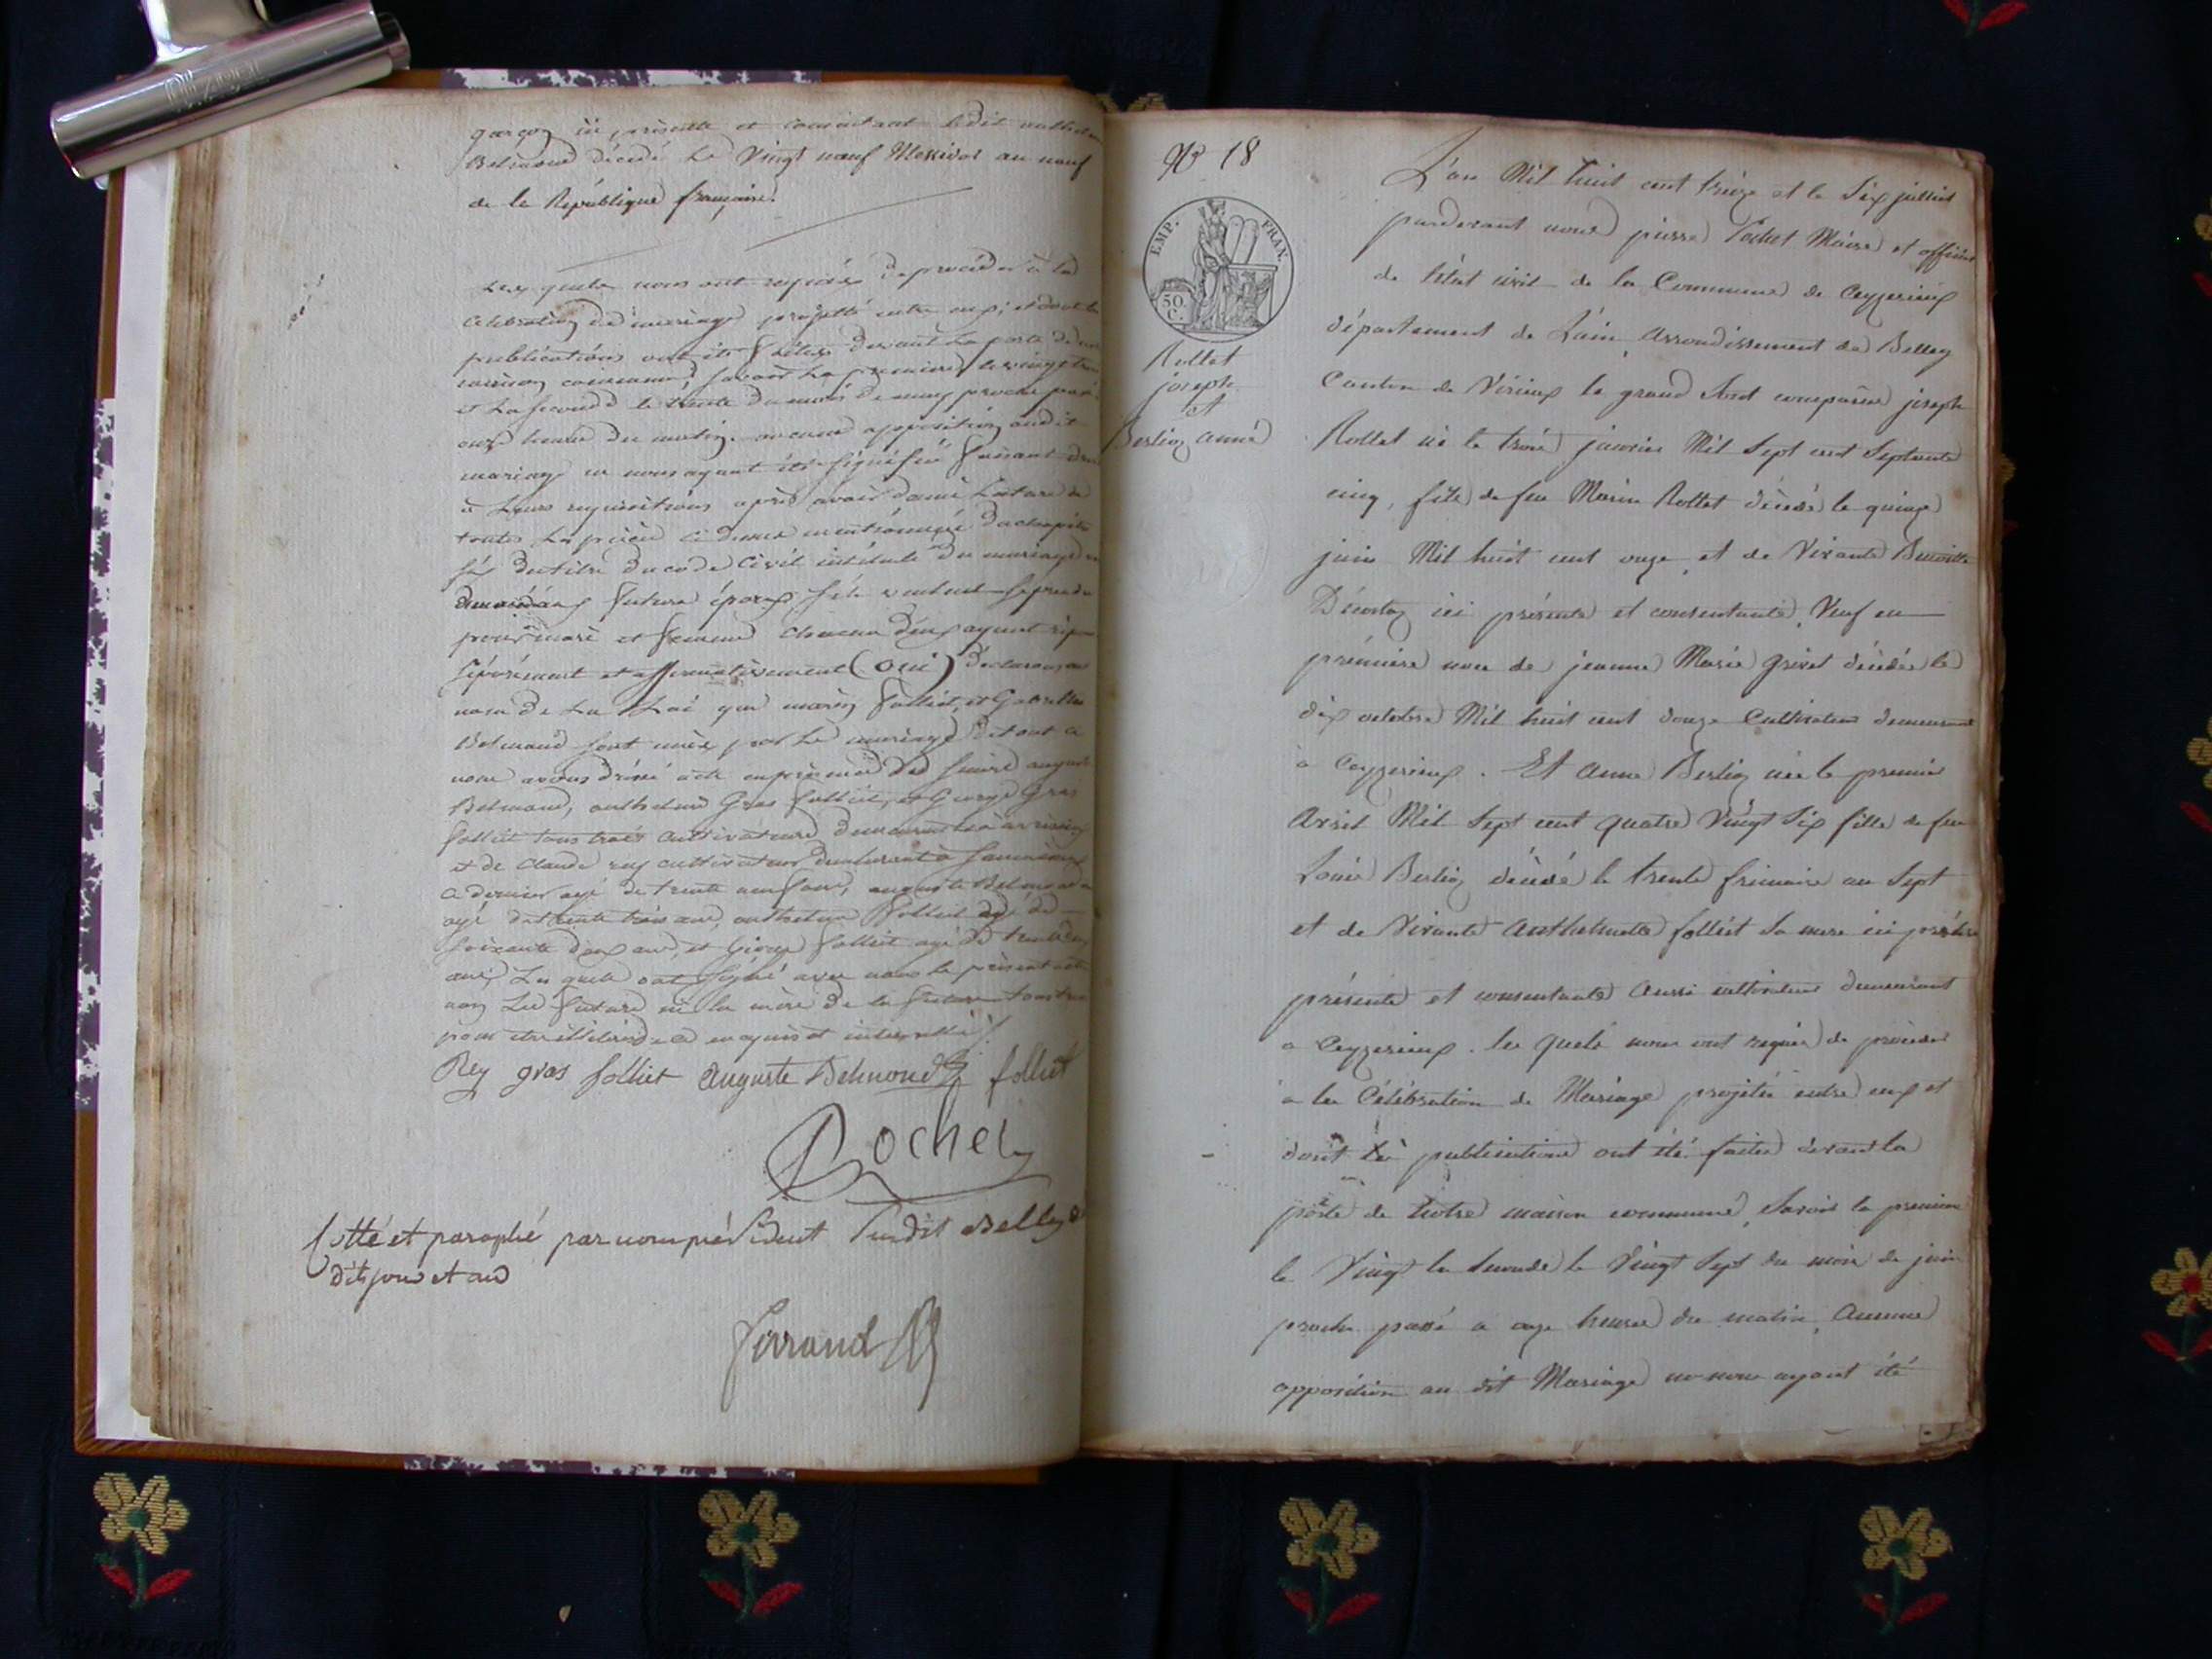 garçon ici présente et consentant ledit
Belmond décédé le Vingt neuf Messidor an neuf
de la République française.
Lesquels nous ont requis de procéder à la
célébration du mariage projetté entre eux; et dont les
publications ont été faites devant la porte de
maison commune, savoir la première le vingt trois
et la seconde le trente du mois de may proche passé
onze heure du matin. aucune opposition audit
mariage ne nous ayant été signifiée faisant droit
à leurs requisitions après avoir donné lecture de
toutes les pièces ci dessus mentionnées du chapitre
six du titre du code Civil intitulé du mariage
futurs époux s'ils veulent se prendre
pour mari et femme chacun d'eux ayant répondu
séparément et affirmativement (oui) déclarons au
nom de la Loi que marin folliet, et
Belmond sont unis par le mariage de tout ce
nous avons dréssé acte en présence de auguste
Belmond, anthelme Gras folliet, et George Gras
folliet tous trois cultivateurs demeurant à
et de Claude rey cultivateur demeurant à
ce dernier agé de trente ans, auguste Belmond
agé de trente trois ans, anthelme folliet agé de
soixante deux ans, et George folliet agé de trente
ans, Les quels ont signé avec nous le présent acte
non les futurs ni la mère de la future
pour être illitérés de ce enquis et interpellés.
Rey gras folliet Auguste Belmond folliet
Rochet
Cotté et paraphé par nous président Susdit Belley
dits jour et an
Ferrand
N° 18
EMP. FRAN.
50. C.
Rollet
joseph
et
Berlioz anne
L'an Mil huit cent treize et le Six juillet
pardevant nous pierre Rochet Maire et officier
de l'état civil de la Commune de Ceyzerieux
département de L'ain, Arrondissement de Belley
Canton de Virieux le grand Sont comparus joseph
Rollet né le trois janvier Mil Sept cent Septante
cinq, fils de feu Marin Rollet décédé le quinze
juin Mil huit cent onze, et de Vivante
ici présente et consentante, Veuf en
première noce de jeanne Marie Grivet décédée le
dix octobre Mil huit cent douze Cultivateur demeurant
à Ceyzerieux. Et Anne Berlioz née le premier
Avril Mil Sept cent quatre Vingt Six fille de feu
Louis Berlioz décédé le trente frimaire an Sept
et de Vivante Anthelmette folliet Sa mère ici présente
présente et consentante Aussi cultivateur demeurant
a Ceyzerieux. les quels nous ont requis de procéder
à la Célébration de Mariage projetée entre eux et
dont les publications ont été faites devant la
porte de notre maison commune, Savoir la première
le Vingt la Seconde le Vingt Sept du mois de juin
proche passé a onze heures du matin, Aucune
opposition au dit Mariage ne nous ayant été